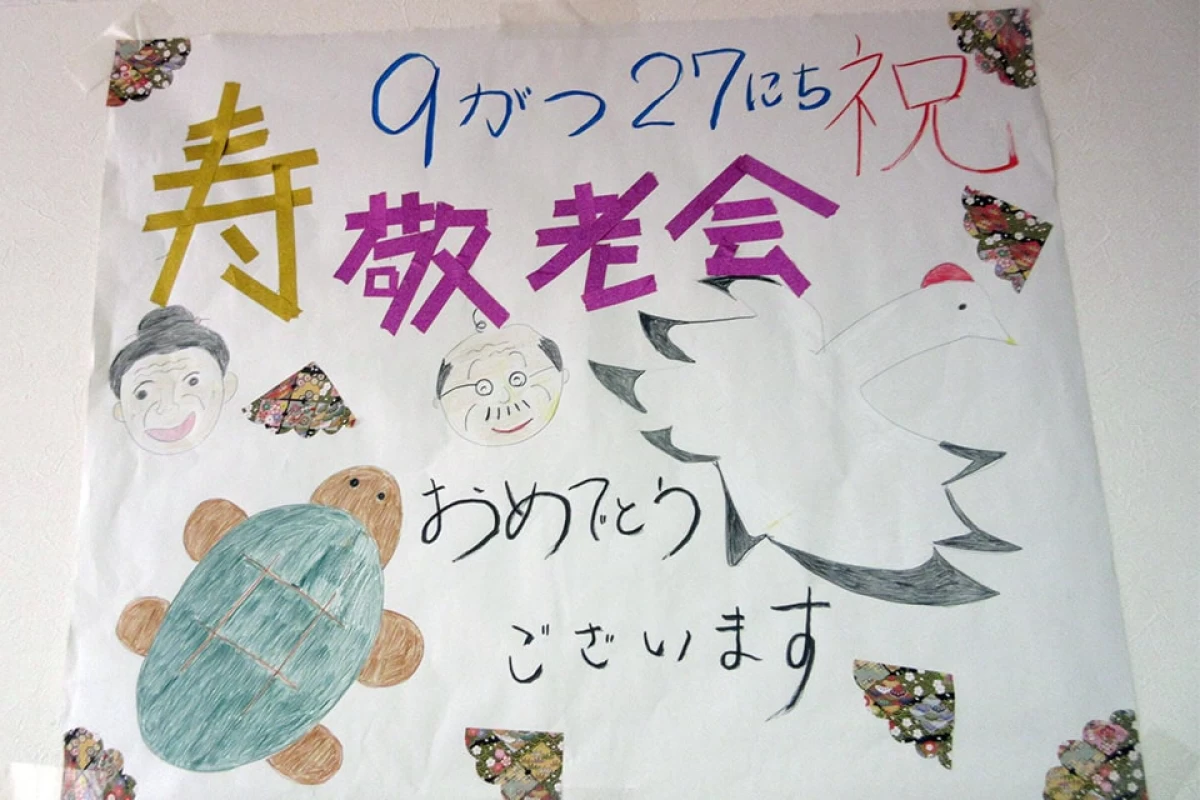 9がつ27にち祝
寿
敬老会
おめでとう
ございます